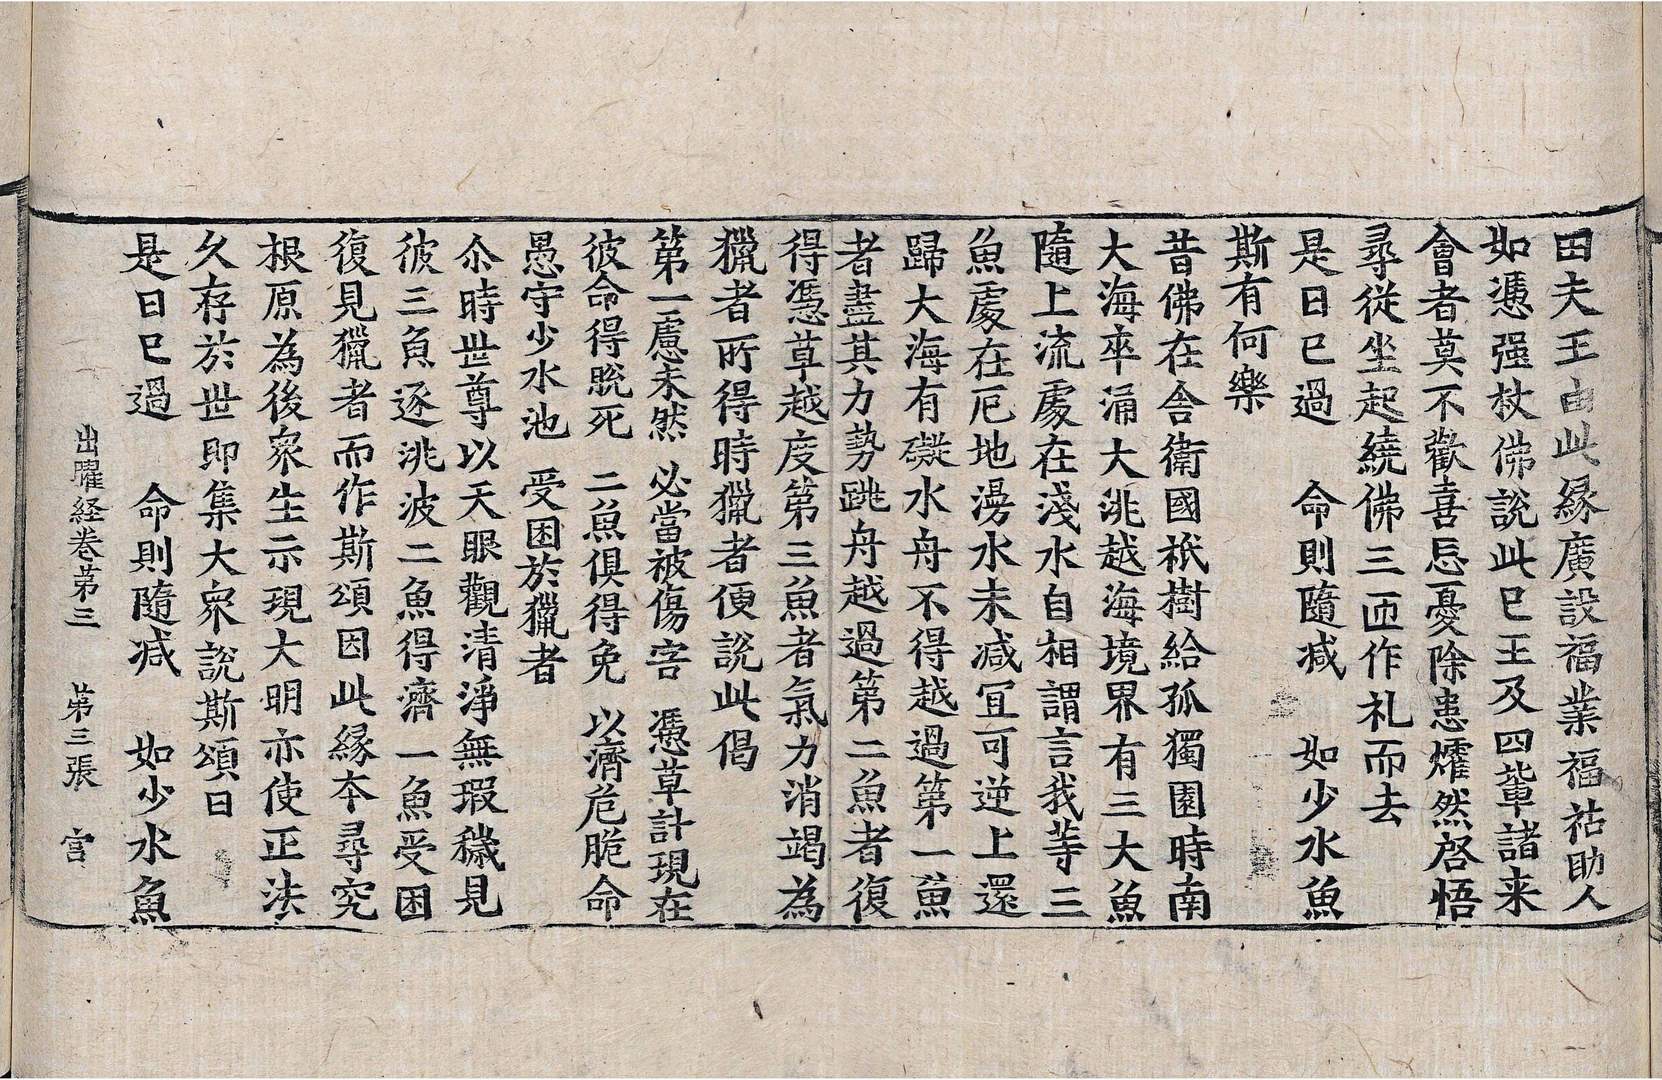 田夫王由此緣廣設福業福祐助人
如憑强杖佛說此已王及四輩諸来
會者莫不歡喜忘憂除患㸌然啓悟
尋從坐起繞佛三匝作礼而去
是日已過　命則隨減　如少水魚
斯有何樂
昔佛在舎衛國祇樹給孤獨園時南
大海卒涌大洮越海境界有三大魚
隨上流處在淺水自相謂言我等三
魚處在厄地漫水未减冝可逆上還
歸大海有礙水舟不得越過第一魚
者盡其力勢跳舟越過第二魚者復
得憑草越度第三魚者氣力消竭為
獵者所得時獵者便說此偈
第一慮未然　必當被傷害　憑草計現在
彼命得脫死　二魚俱得免　以濟危脆命
愚守少水池　受困於獵者
尒時世尊以天眼觀清淨無瑕穢見
彼三魚逐洮波二魚得濟一魚受困
復見獵者而作斯頌因此緣夲尋究
根原為後衆生示現大明亦使正法
久存於世即集大衆說斯頌曰
是日已過　命則隨减　如少水魚
出曜経卷第三　第三張　宫